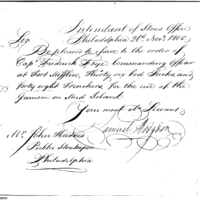 Intendant of Stores Office
Philadelphia 26th Novr 1800
Sir
Be pleased to issue to the order of
Capt Frederick Frye Commanding Officer
at Fort Mifflin, Thirty six bed Sacks, and
forty eight Trenchers for the use of the
Garrison on Mud Island.
Your most ob Servant
Samuel Hodgdon
Mr John Harris
Public Storekeeper
Philadelphia